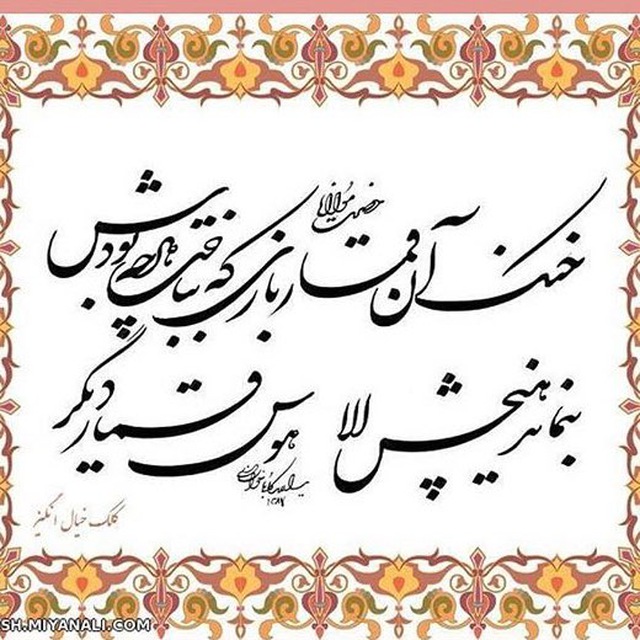 حضرت مولانا
خنک آن قماربازی که بباخت هر چه بودش
بنماند هیچش الا هوس قمار دیگر
کلک خیال انگیز
SH.MIYANALI.COM